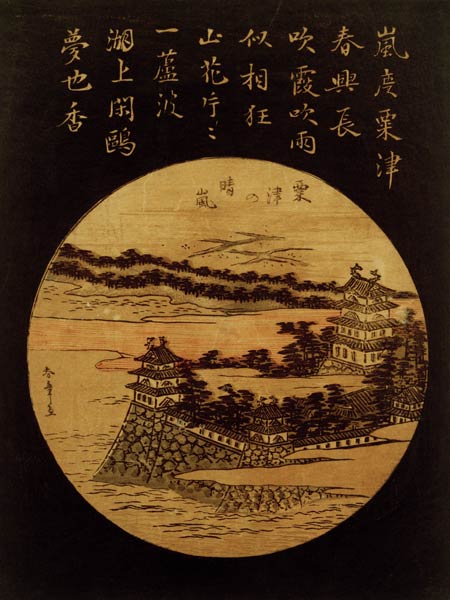 嵐度粟津
春興長
吹霞吹雨
似相狂
山花片々
一蘆波
湖上閑鴎
夢也香
粟津の晴嵐
春章画